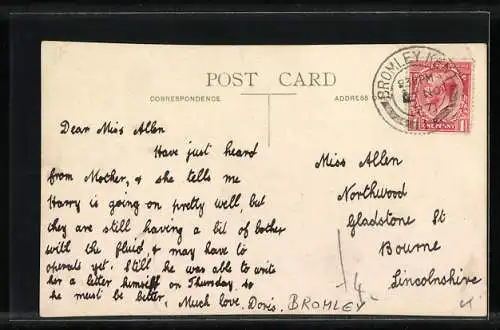 POST CARD
CORRESPONDENCE
ADDRESS
BROMLEY. KENT
PENNY
1
Dear Miss Allen
Have just heard
from Mother, & she tells me
Harry is going on pretty well, but
they are still having a bit of bother
with the fluid, & may have to
operate yet. Still he was able to write
her a letter himself on Thursday so
he must be better. Much love. Doris. BROMLEY
Miss Allen
Northwood
Gladstone St
Bourne
Lincolnshire